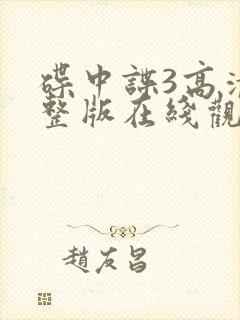 碟中諜3高清
整版在綫觀
趙友昌